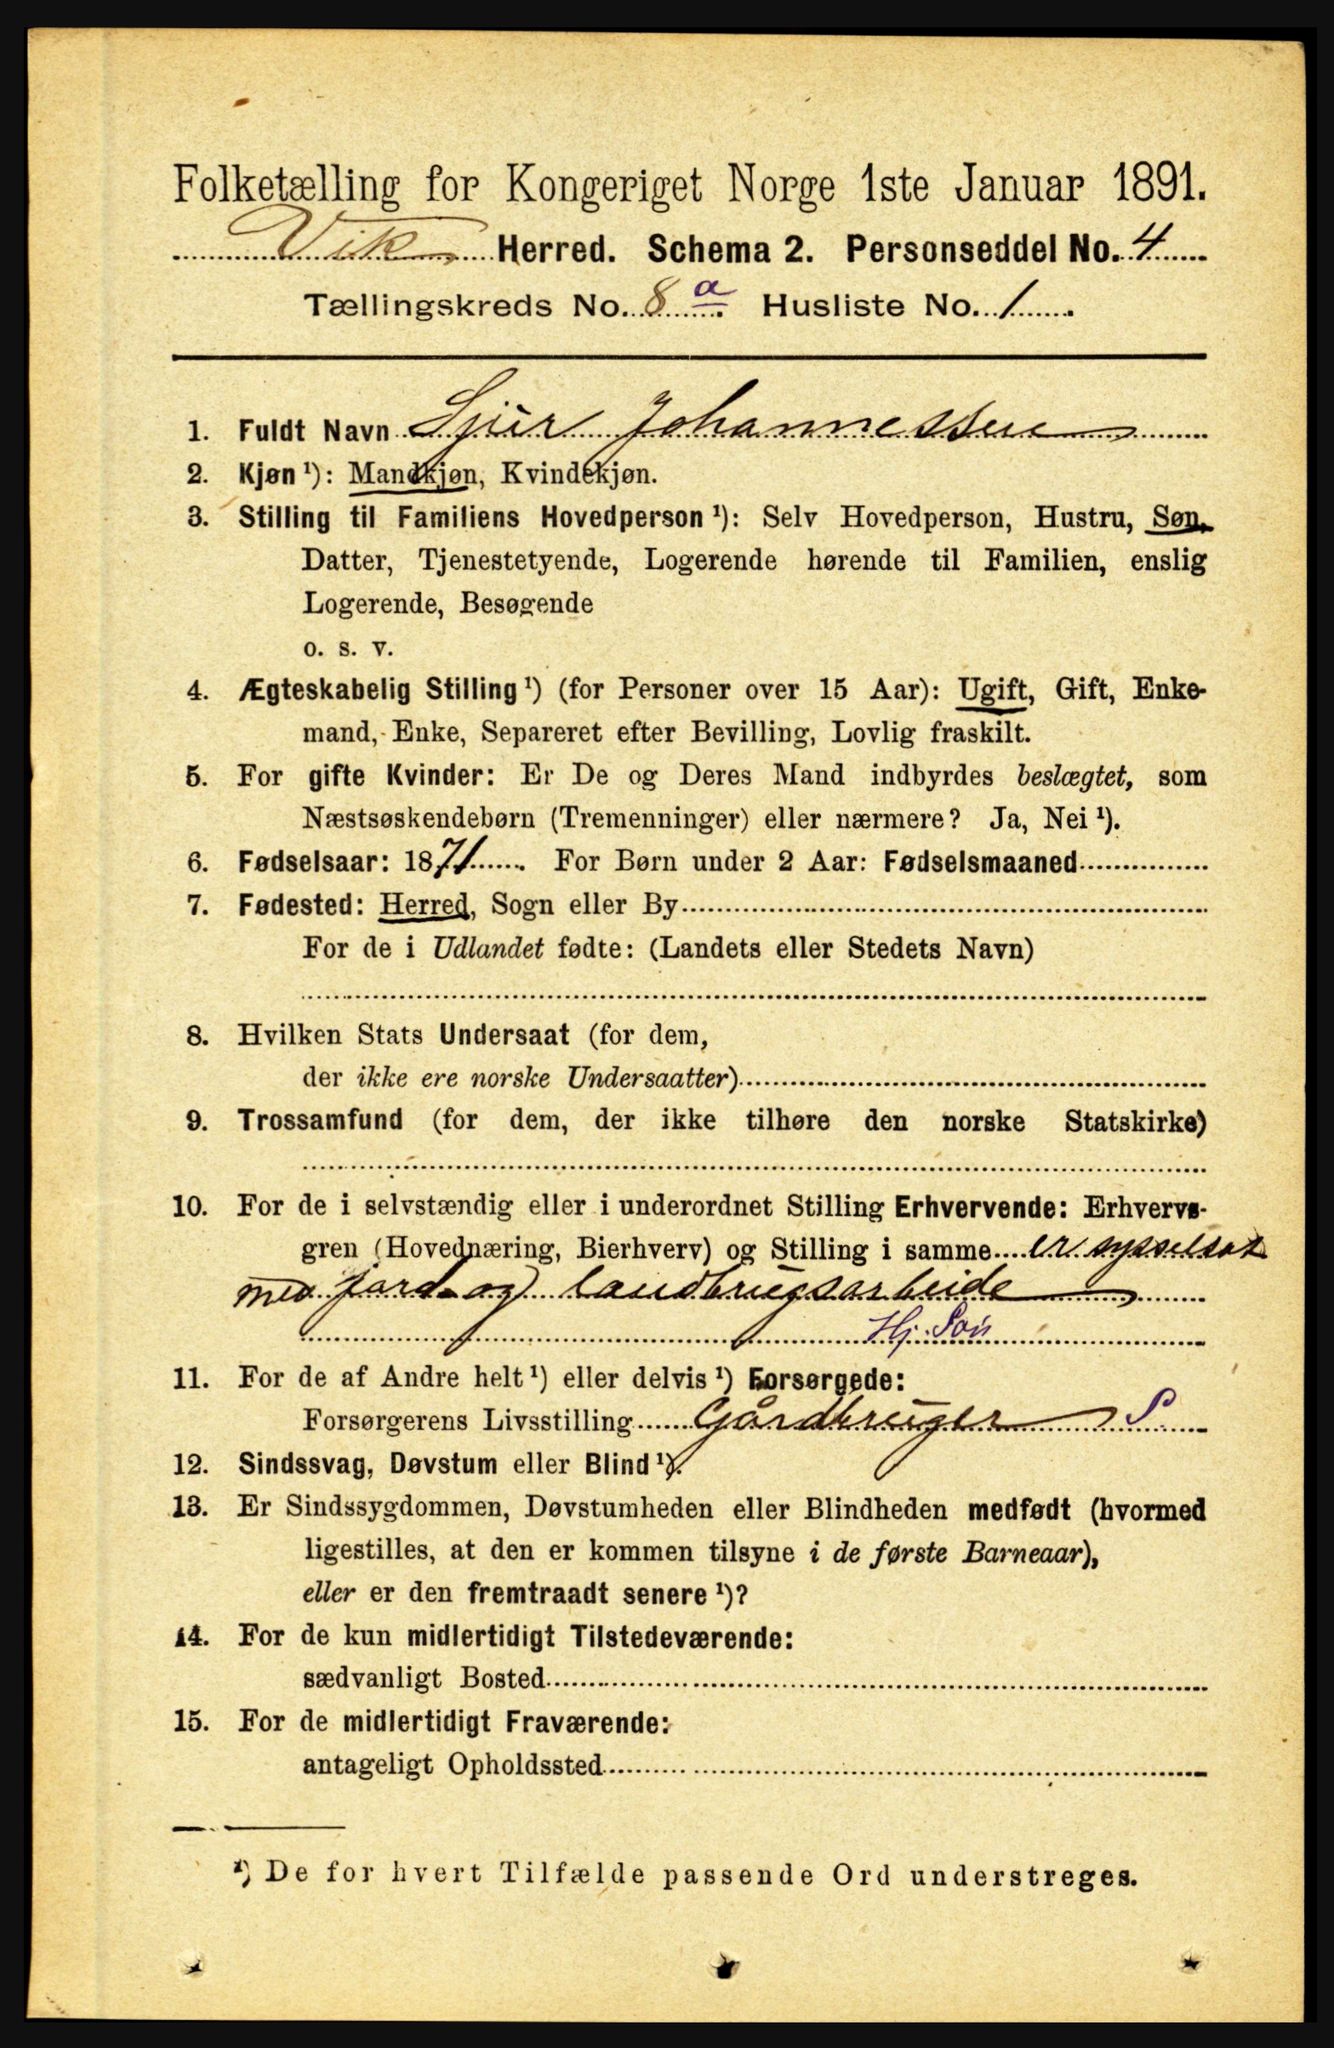 Folketælling for Kongeriget Norge 1ste Januar 1891.
Vik Herred. Schema 2. Personseddel No. 4
Tællingskreds No. 8 a. Husliste No. 1.
1. Fuldt Navn Sjur Johannessen
2. Kjøn ¹): Mandkjøn, Kvindekjøn.
3. Stilling til Familiens Hovedperson ¹): Selv Hovedperson, Hustru, Søn,
Datter, Tjenestetyende, Logerende hørende til Familien, enslig
Logerende, Besøgende
o. s. v.
4. Ægteskabelig Stilling ¹) (for Personer over 15 Aar): Ugift, Gift, Enke-
mand, Enke, Separeret efter Bevilling, Lovlig fraskilt.
5. For gifte Kvinder: Er De og Deres Mand indbyrdes beslægtet, som
Næstsøskendebørn (Tremenninger) eller nærmere? Ja, Nei ¹).
6. Fødselsaar: 1871. For Børn under 2 Aar: Fødselsmaaned
7. Fødested: Herred, Sogn eller By
For de i Udlandet fødte: (Landets eller Stedets Navn)
8. Hvilken Stats Undersaat (for dem,
der ikke ere norske Undersaatter)
9. Trossamfund (for dem, der ikke tilhøre den norske Statskirke)
10. For de i selvstændig eller i underordnet Stilling Erhvervende: Erhvervs-
gren (Hovednæring, Bierhverv) og Stilling i samme er sysselsat
med jord- og landbrugsarbeide
Hj. Søn
11. For de af Andre helt ¹) eller delvis ¹) Forsørgede:
Forsørgerens Livsstilling Gårdbruger S.
12. Sindssvag, Døvstum eller Blind ¹).
13. Er Sindssygdommen, Døvstumheden eller Blindheden medfødt (hvormed
ligestilles, at den er kommen tilsyne i de første Barneaar),
eller er den fremtraadt senere ¹)?
14. For de kun midlertidigt Tilstedeværende:
sædvanligt Bosted
15. For de midlertidigt Fraværende:
antageligt Opholdssted
¹) De for hvert Tilfælde passende Ord understreges.